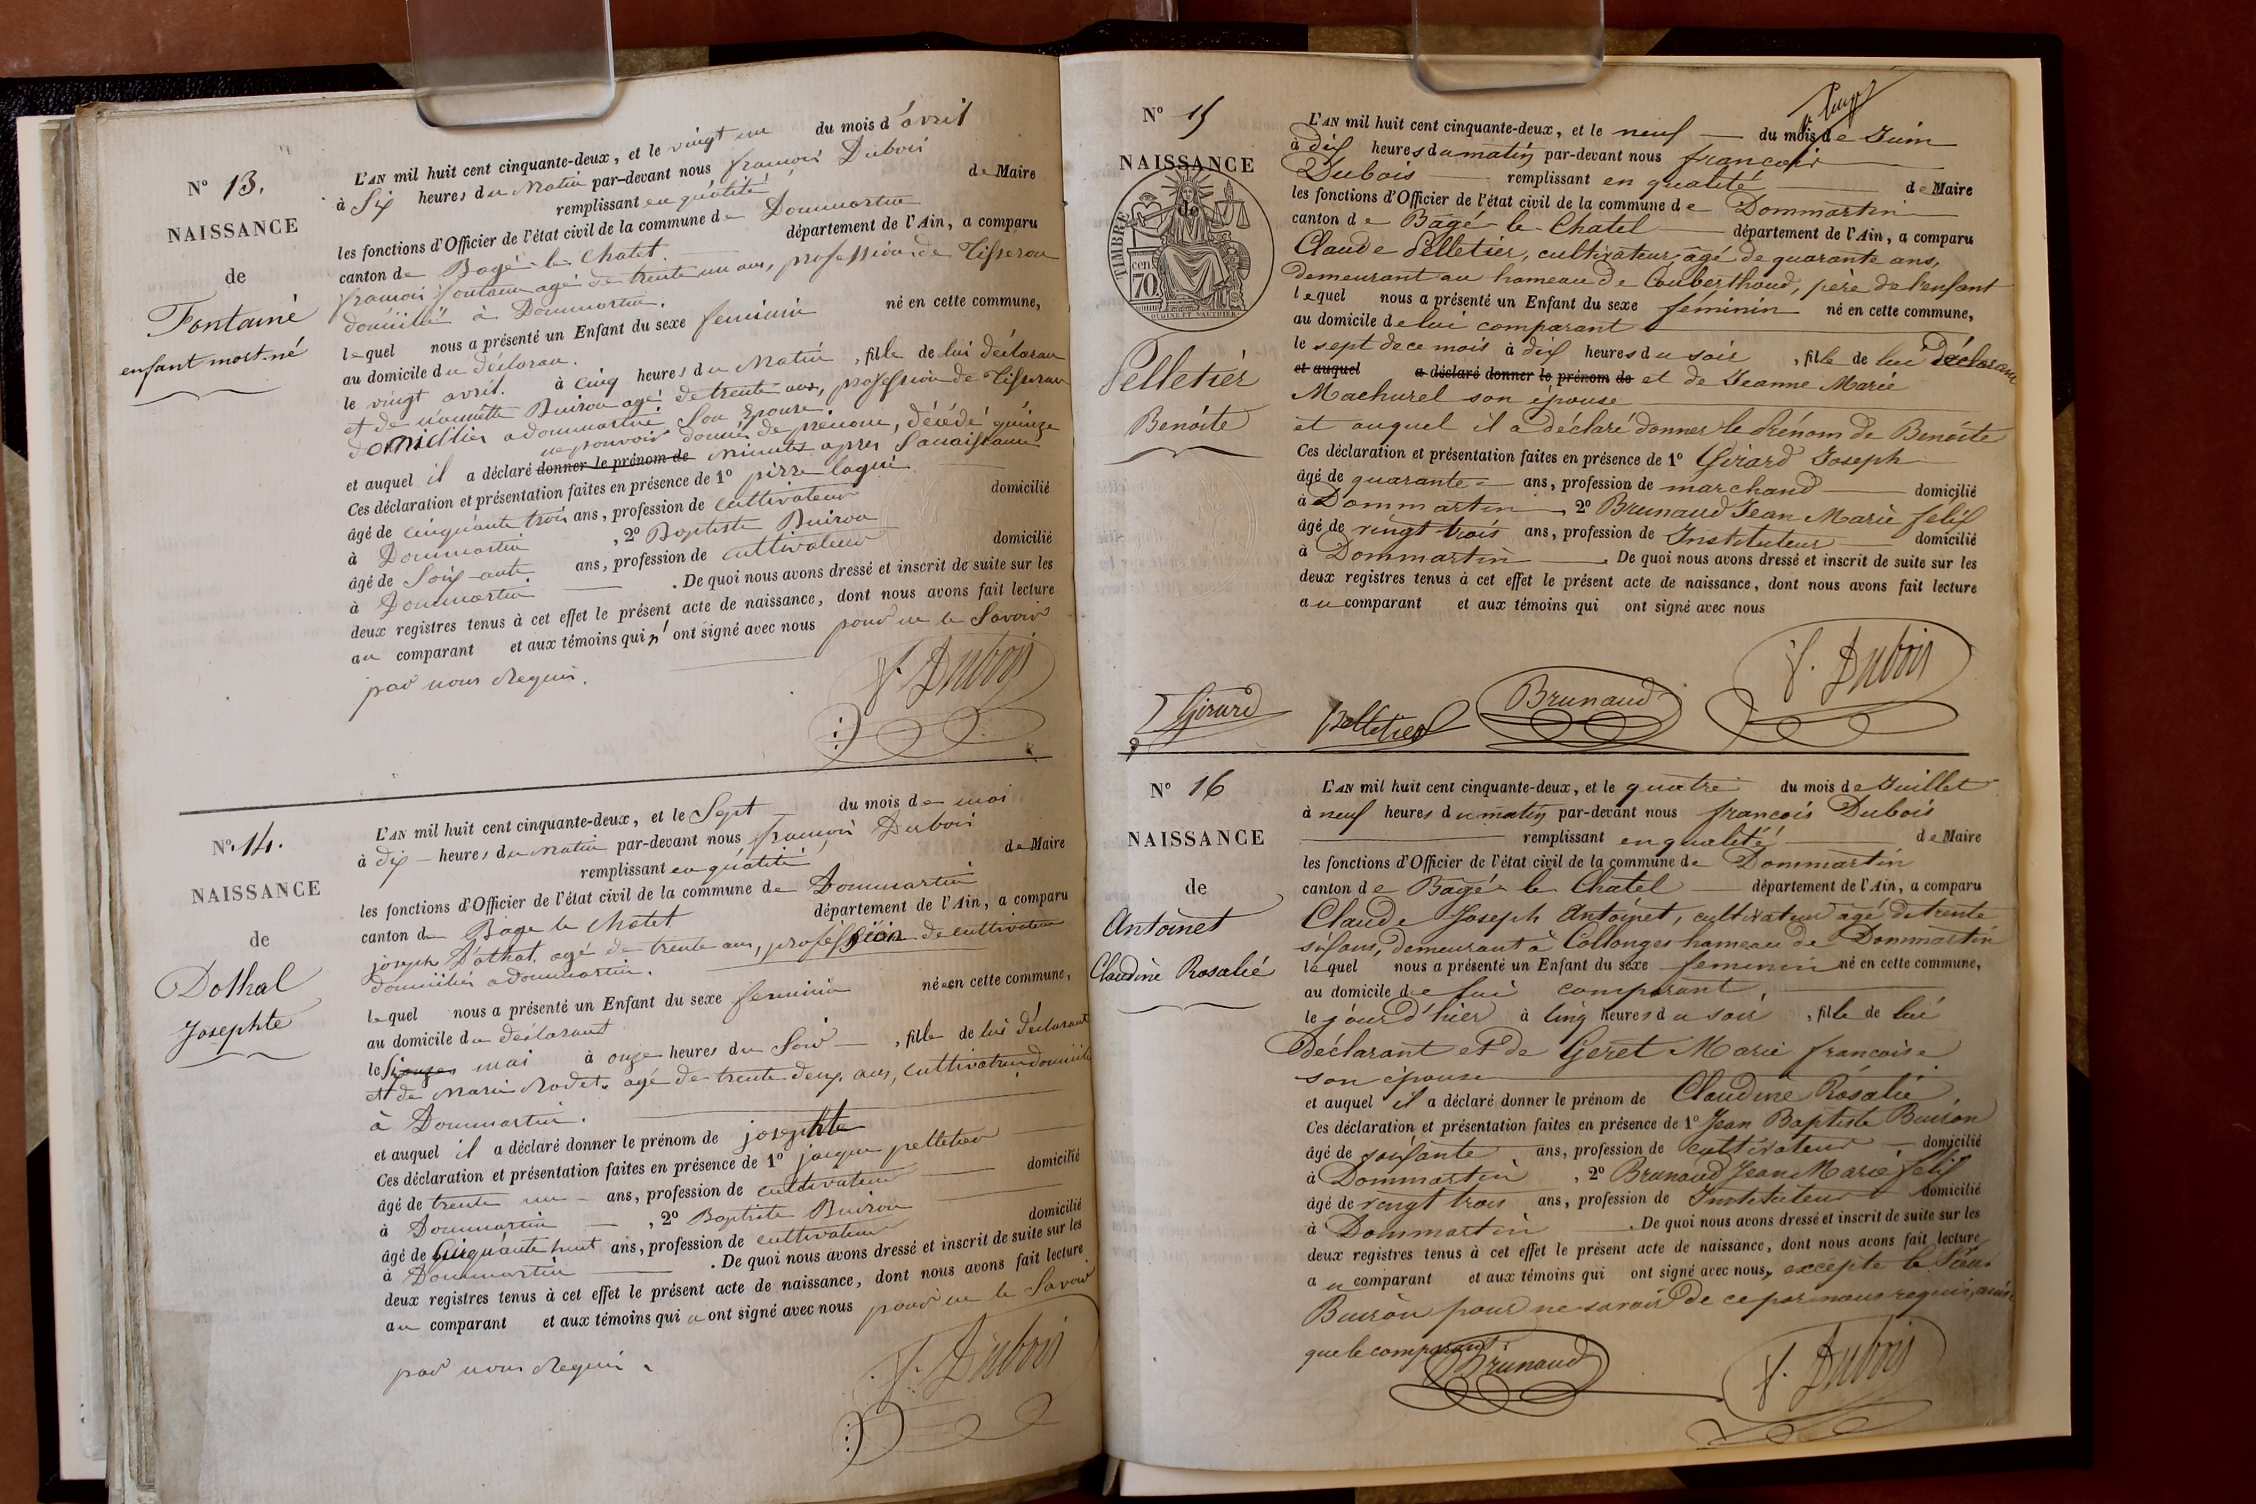 N° 13.
NAISSANCE
de
Fontaine
enfant mort-né
L'AN mil huit cent cinquante-deux, et le vingt un du mois d'avril
à Six heures du Matin par-devant nous françois Dubois
remplissant en quâlité de Maire
les fonctions d'Officier de l'état civil de la commune de Dommartin
canton de Bagé le Chatel département de l'Ain, a comparu
françois fontaine agé de trente un ans, profession de Tisseran
domicilié à Dommartin.
lequel nous a présenté un Enfant du sexe feminin né en cette commune,
au domicile du déclaran.
le vingt avril. à cinq heures du Matin, fille de lui déclaran
et de Buiron agé de trente ans, profession de Tisseran
domicilier a dommartin Son Epouse.
ne pouvoir donner de prénom, décédé quinze
et auquel il a déclaré donner le prénom de minutes apres Sa naissance
Ces déclaration et présentation faites en présence de 1° pierre
âgé de cinquante trois ans, profession de cultivateur domicilié
à Dommartin, 2° Baptiste Buiron
âgé de Soix-ante ans, profession de cultivateur domicilié
à Dommartin. De quoi nous avons dressé et inscrit de suite sur les
deux registres tenus à cet effet le présent acte de naissance, dont nous avons fait lecture
au comparant et aux témoins qui n'ont signé avec nous pour ne le Savoir
par nous Requis.
f. Dubois
N° 14.
NAISSANCE
de
Dothal
Josephte
L'AN mil huit cent cinquante-deux, et le Sept du mois de mai
à dix heures du Matin par-devant nous françois Dubois
remplissant en quâlité de Maire
les fonctions d'Officier de l'état civil de la commune de Dommartin
canton de Bage le Chatel département de l'Ain, a comparu
joseph Dothal agé de trente ans, profession de cultivateur
domicilier a dommartin.
lequel nous a présenté un Enfant du sexe feminin né en cette commune,
au domicile du déclarant
le Six mai à onze heures du Soir, fille de lui déclarant
et de Marie Rodet agé de trente deux ans, cultivatrice domicilié
à Dommartin.
et auquel il a déclaré donner le prénom de josephte
Ces déclaration et présentation faites en présence de 1° jacque pelletier
âgé de trente un ans, profession de cultivateur domicilié
à Dommartin, 2° Baptiste Buiron
âgé de Cinquante huit ans, profession de cultivateur domicilié
à Dommartin. De quoi nous avons dressé et inscrit de suite sur les
deux registres tenus à cet effet le présent acte de naissance, dont nous avons fait lecture
au comparant et aux témoins qui n ont signé avec nous pour ne le Savoir
par nous Requis.
f. Dubois
N° 15
NAISSANCE
de
TIMBRE
cen.
70
Pelletier
Benoîte
L'AN mil huit cent cinquante-deux, et le neuf du mois de Juin
à dix heures du matin par-devant nous françois
Dubois remplissant en qualité de Maire
les fonctions d'Officier de l'état civil de la commune de Dommartin
canton de Bâgé le Chatel département de l'Ain, a comparu
Claude Pelletier, cultivateur âgé de quarante ans,
demeurant au hameau de Couberthoud, père de l'enfant
lequel nous a présenté un Enfant du sexe féminin né en cette commune,
au domicile de lui comparant
le sept de ce mois à dix heures du soir, fille de lui Déclarant
et auquel a déclaré donner le prénom de et de Jeanne Marie
Machurel son épouse
et auquel il a déclaré donner le Prénom de Benoîte
Ces déclaration et présentation faites en présence de 1° Girard Joseph
âgé de quarante ans, profession de marchand domicilié
à Dommartin, 2° Brunaud Jean Marie felix
âgé de vingt trois ans, profession de Instituteur domicilié
à Dommartin. De quoi nous avons dressé et inscrit de suite sur les
deux registres tenus à cet effet le présent acte de naissance, dont nous avons fait lecture
au comparant et aux témoins qui ont signé avec nous
Girard Pelletier Brunaud f. Dubois
N° 16
NAISSANCE
de
Antoinet
Claudine Rosalie
L'AN mil huit cent cinquante-deux, et le quatre du mois de Juillet
à neuf heures du matin par-devant nous françois Dubois
remplissant en qualité de Maire
les fonctions d'Officier de l'état civil de la commune de Dommartin
canton de Bâgé le Chatel département de l'Ain, a comparu
Claude Joseph Antoinet, cultivateur âgé de trente
six ans, demeurant à Collonges hameau de Dommartin
lequel nous a présenté un Enfant du sexe feminin né en cette commune,
au domicile de lui comparant,
le jour d'hier à cinq heures du soir, fille de lui
Déclarant et de Geret Marie françoise
son épouse
et auquel il a déclaré donner le prénom de Claudine Rosalie
Ces déclaration et présentation faites en présence de 1° Jean Baptiste Buiron
âgé de soixante ans, profession de cultivateur domicilié
à Dommartin, 2° Brunaud Jean Marie felix
âgé de vingt trois ans, profession de Instituteur domicilié
à Dommartin. De quoi nous avons dressé et inscrit de suite sur les
deux registres tenus à cet effet le présent acte de naissance, dont nous avons fait lecture
au comparant et aux témoins qui ont signé avec nous, excepté le Sieur
Buiron pour ne savoir de ce par nous requis, ainsi
que le comparant.
Brunaud f. Dubois